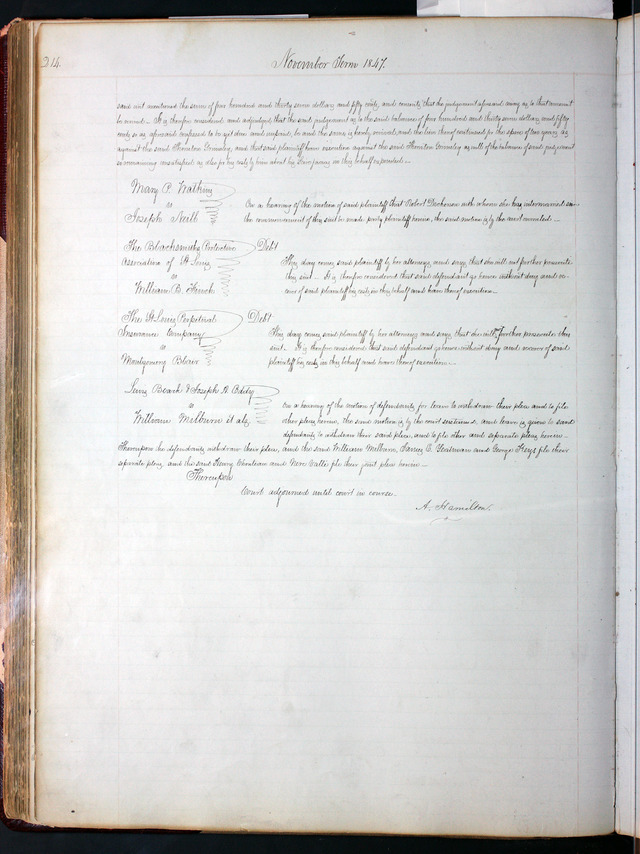 214.
November Term 1847.
said writ mentioned the sum of four hundred and thirty seven dollars and fifty cents, and consents that the judgement aforesaid away as to that amount
be revived. It is therefore considered and adjudged that the said judgement as to the said balance of four hundred and thirty seven dollars and fifty
cents, so as aforesaid confessed to be yet due and unpaid, be and the same is hereby revived, and the lien thereof continued for the space of two years, as
against the said Thornton Grimsley, and that said plaintiff have execution against the said Thornton Grimsley as well of the balance of said judgement
so remaining unsatisfied as also for his costs by him about his suing in this behalf expended.
Mary P. Watkins
vs
Joseph Neill
On a hearing of the motion of said plaintiff that Robert Dickerson with whom she has intermarried since
the commencement of this suit be made party plaintiff herein, the said motion is by the court sustained.
The Blacksmiths Protective
Association of St Louis
vs
William B. French
Debt
This day comes said plaintiff by her attorney, and says that she will not further prosecute
this suit. It is therefore considered that said defendant go hence without day and re-
cover of said plaintiff his costs in this behalf and have thereof execution.
The St Louis Perpetual
Insurance Company
vs
Montgomery Blair
Debt
This day comes said plaintiff by her attorney and says that she will not further prosecute this
suit. It is therefore considered that said defendant go hence without day and recover of said
plaintiff his costs in this behalf and have thereof execution.
Beach & Joseph A.
vs
William Milburn et als,
On a hearing of the motion of defendants, for leave to withdraw their plea and to file
other pleas herein, the said motion is by the court sustained, and leave is given to said
defendants to withdraw their said plea, and to file other and separate pleas herein.
Thereupon the defendants withdraw their plea, and the said William Milburn, and George Keys file their
separate pleas, and the said Henry Chouteau and Valle file their joint plea herein.
Thereupon
Court adjourned until court in course.
A. Hamilton.